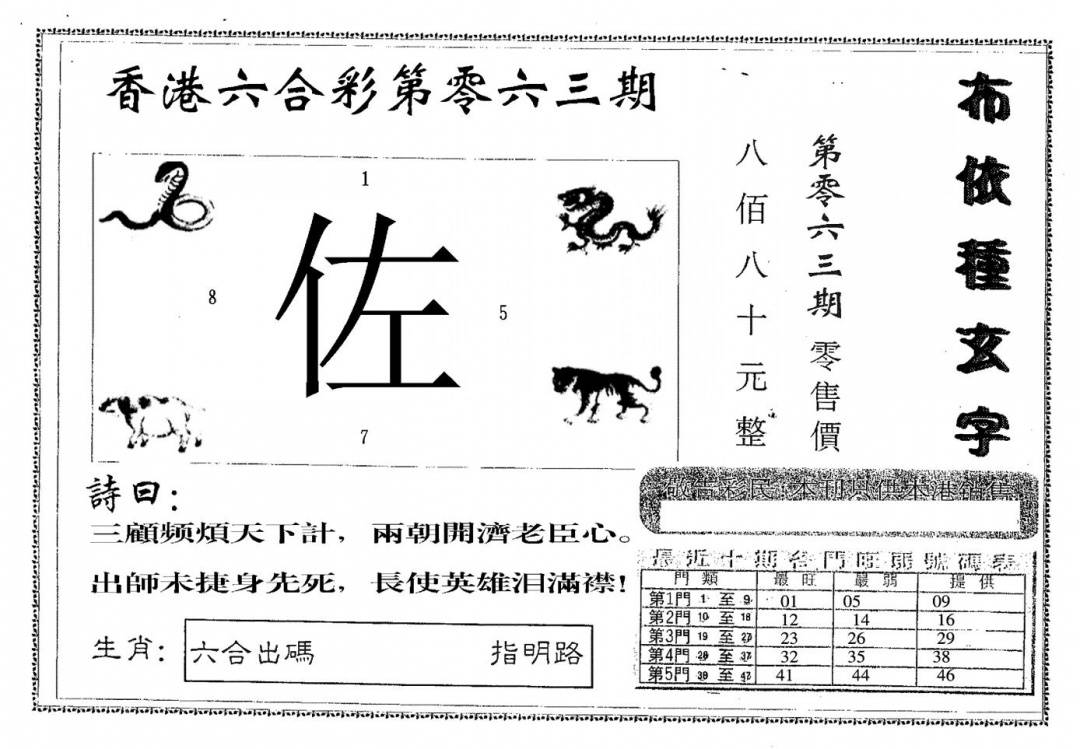 香港六合彩第零六三期
布依種玄字
第零六三期零售價
八佰八十元整
1
佐
8
5
7
詩曰：
三顧频煩天下計，兩朝開濟老臣心。
出師未捷身先死，長使英雄泪滿襟！
生肖：六合出碼 指明路
敬告彩民：本刊只供本港銷售
最近十期各門旺弱號碼表
門類 最旺 最弱 提供
第1門 1 至 9 01 05 09
第2門 10 至 18 12 14 16
第3門 19 至 27 23 26 29
第4門 28 至 37 32 35 38
第5門 38 至 47 41 44 46